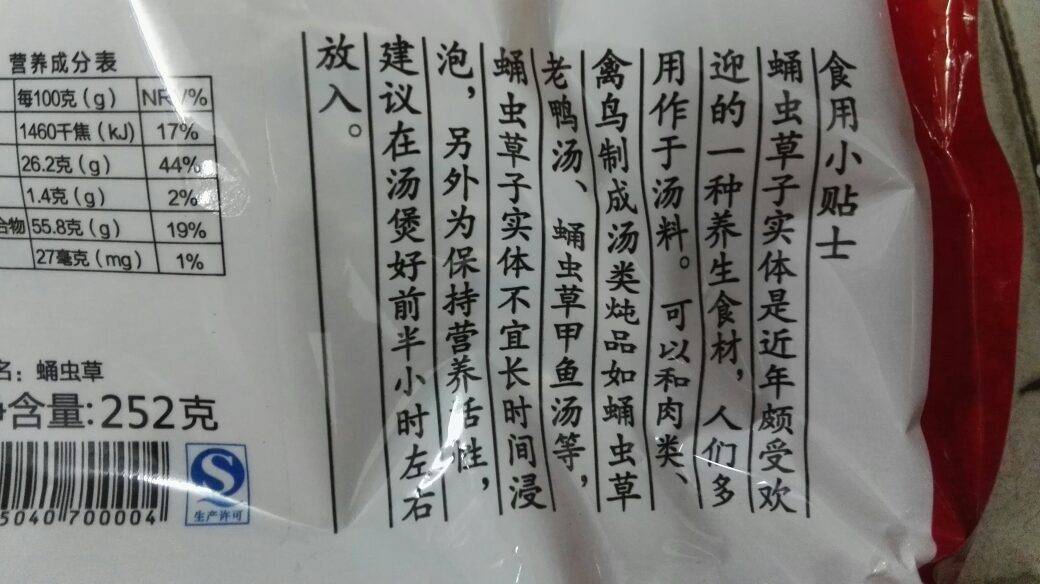 食用小贴士
蛹虫草子实体是近年颇受欢
迎的一种养生食材，人们多
用作于汤料。可以和肉类、
禽鸟制成汤类炖品如蛹虫草
老鸭汤、蛹虫草甲鱼汤等，
蛹虫草子实体不宜长时间浸
泡，另外为保持营养活性，
建议在汤煲好前半小时左右
放入。
营养成分表
每100克（g） NRV%
1460千焦（kJ） 17%
26.2克（g） 44%
1.4克（g） 2%
合物 55.8克（g） 19%
27毫克（mg） 1%
名：蛹虫草
净含量:252克
5040 700004
生产许可